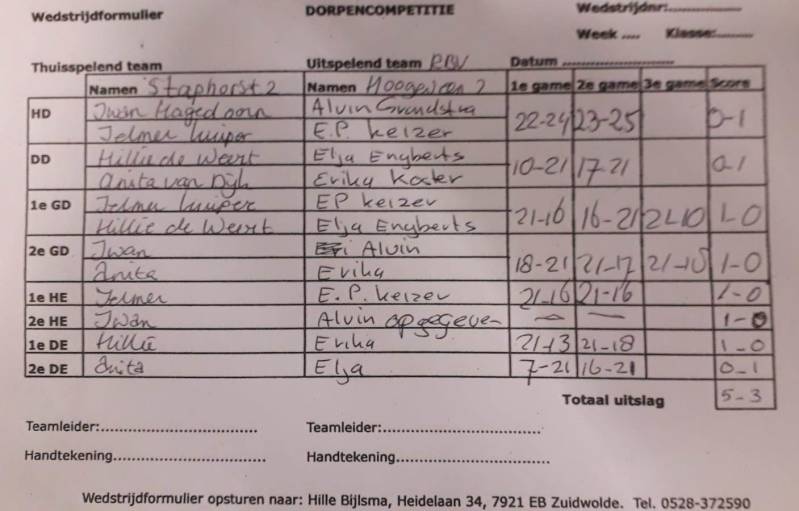 Wedstrijdformulier DORPENCOMPETITIE Wedstrijdnr:..............
Week .... Klasse:.........
Thuisspelend team Uitspelend team Datum ........................
Namen Staphorst 2 Namen Hoogeveen 2 1e game 2e game 3e game Score
HD Jwan Hagedoorn Alvin 22-24 23-25 0-1
Jelmer Kuiper E.P. keizer
DD Hillie de Weert Elja Engberts 10-21 17-21 0-1
Anita van Dijk Erika Koster
1e GD Jelmer Kuiper EP keizer 21-16 16-21 21-10 1-0
Hillie de Weert Elja Engberts
2e GD Jwan Alvin 18-21 21-17 21-15 1-0
Anita Erika
1e HE Jelmer E.P. keizer 21-16 21-16 1-0
2e HE Jwan Alvin opgegeven — — 1-0
1e DE Hillie Erika 21-13 21-18 1-0
2e DE Anita Elja 7-21 16-21 0-1
Totaal uitslag 5-3
Teamleider:.............................. Teamleider:..............................
Handtekening.............................. Handtekening..............................
Wedstrijdformulier opsturen naar: Hille Bijlsma, Heidelaan 34, 7921 EB Zuidwolde. Tel. 0528-372590